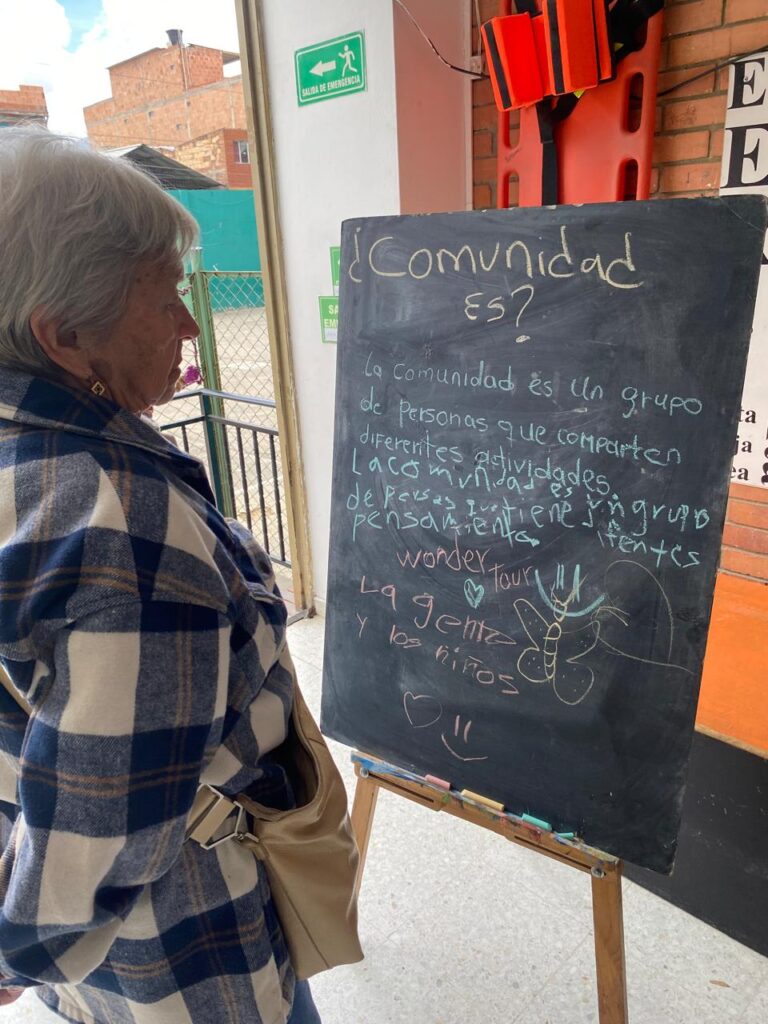 SALIDA DE EMERGENCIA
SA
EME
¿Comunidad
Es?
La comunidad es un grupo
de personas que comparten
diferentes actividades.
La comunidad es un grupo
de que tiene
pensamiento
wonder
tour
La gente
y los niños
E
E
E
ta
ja
ea